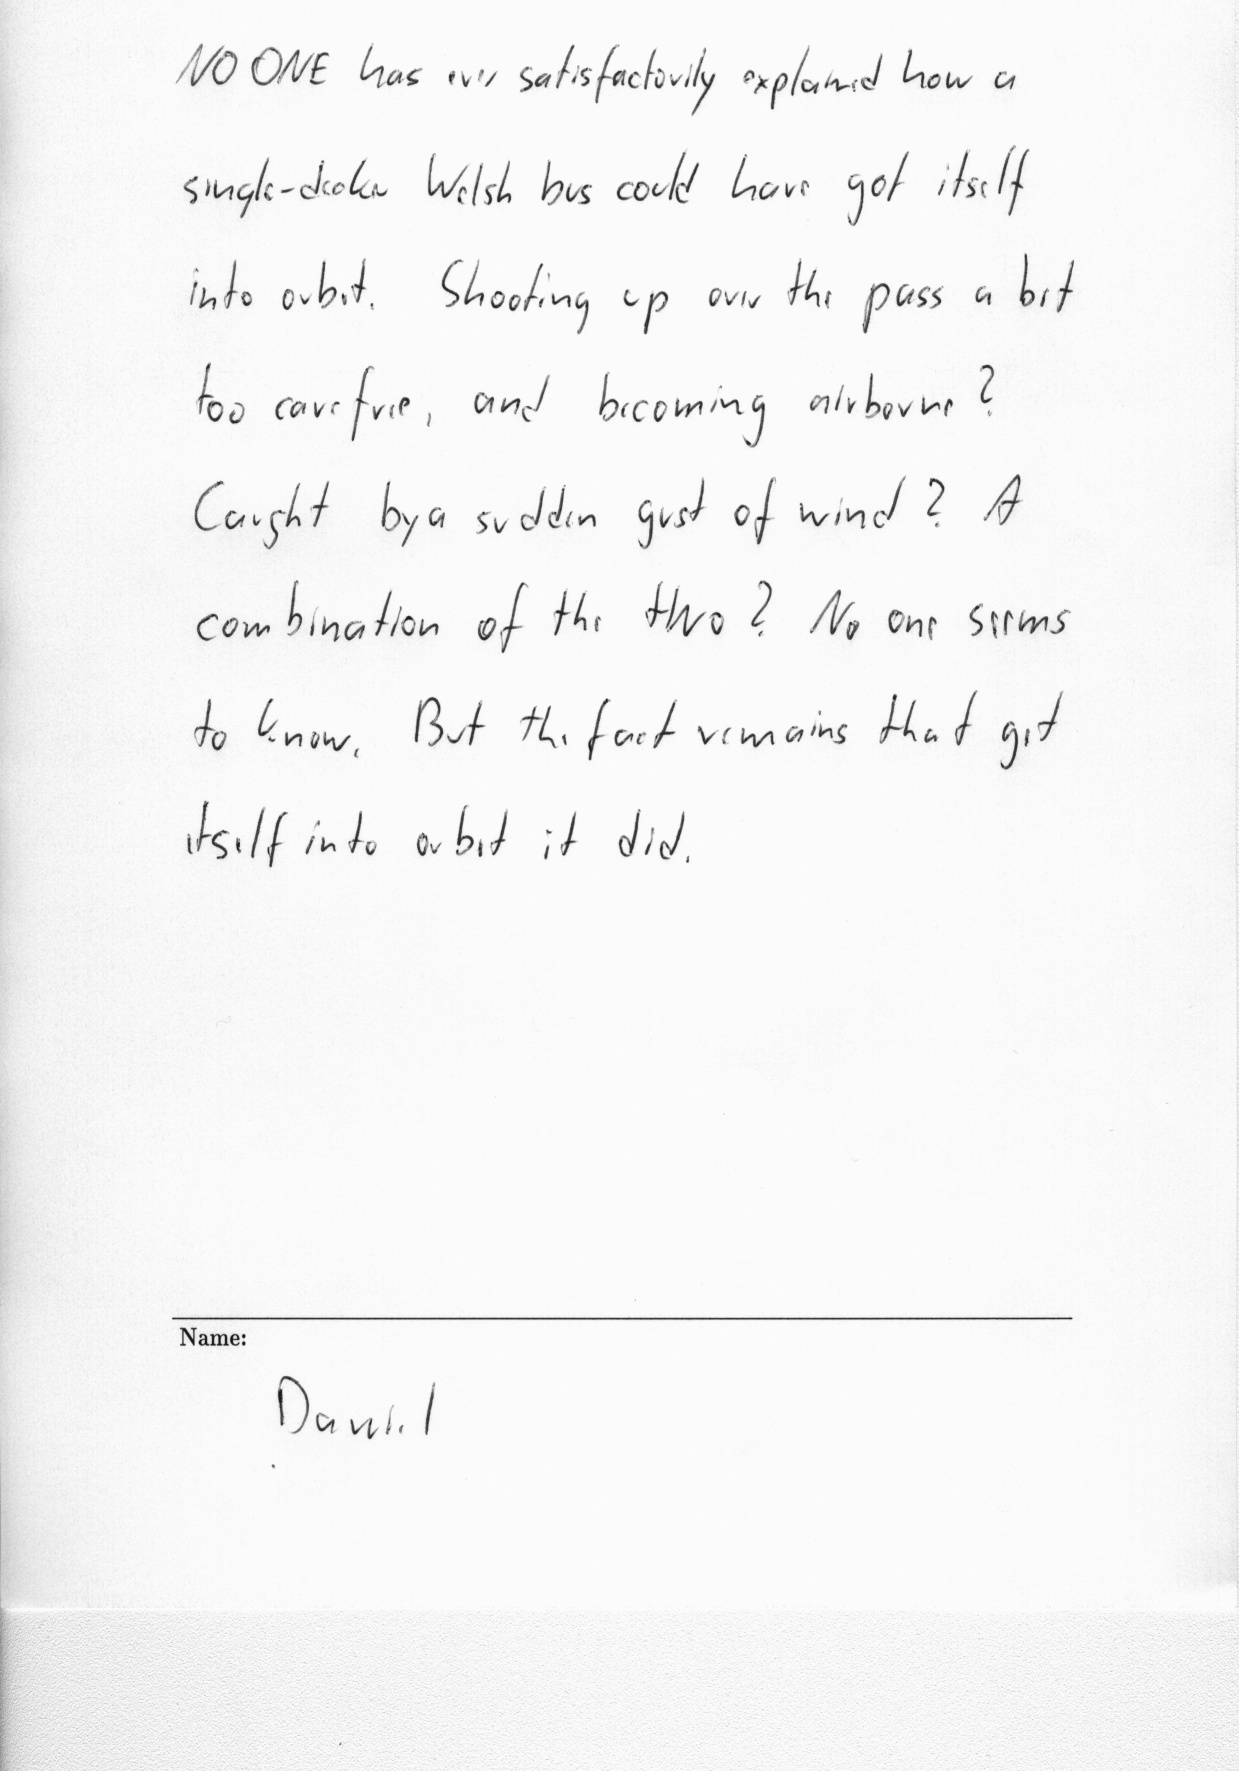 NO ONE has ever satisfactorily explained how a
single-decker Welsh bus could have got itself
into orbit. Shooting up over the pass a bit
too carefree, and becoming airborne?
Caught by a sudden gust of wind? A
combination of the two? No one seems
to know. But the fact remains that get
itself into orbit it did.
Name:
Daniel